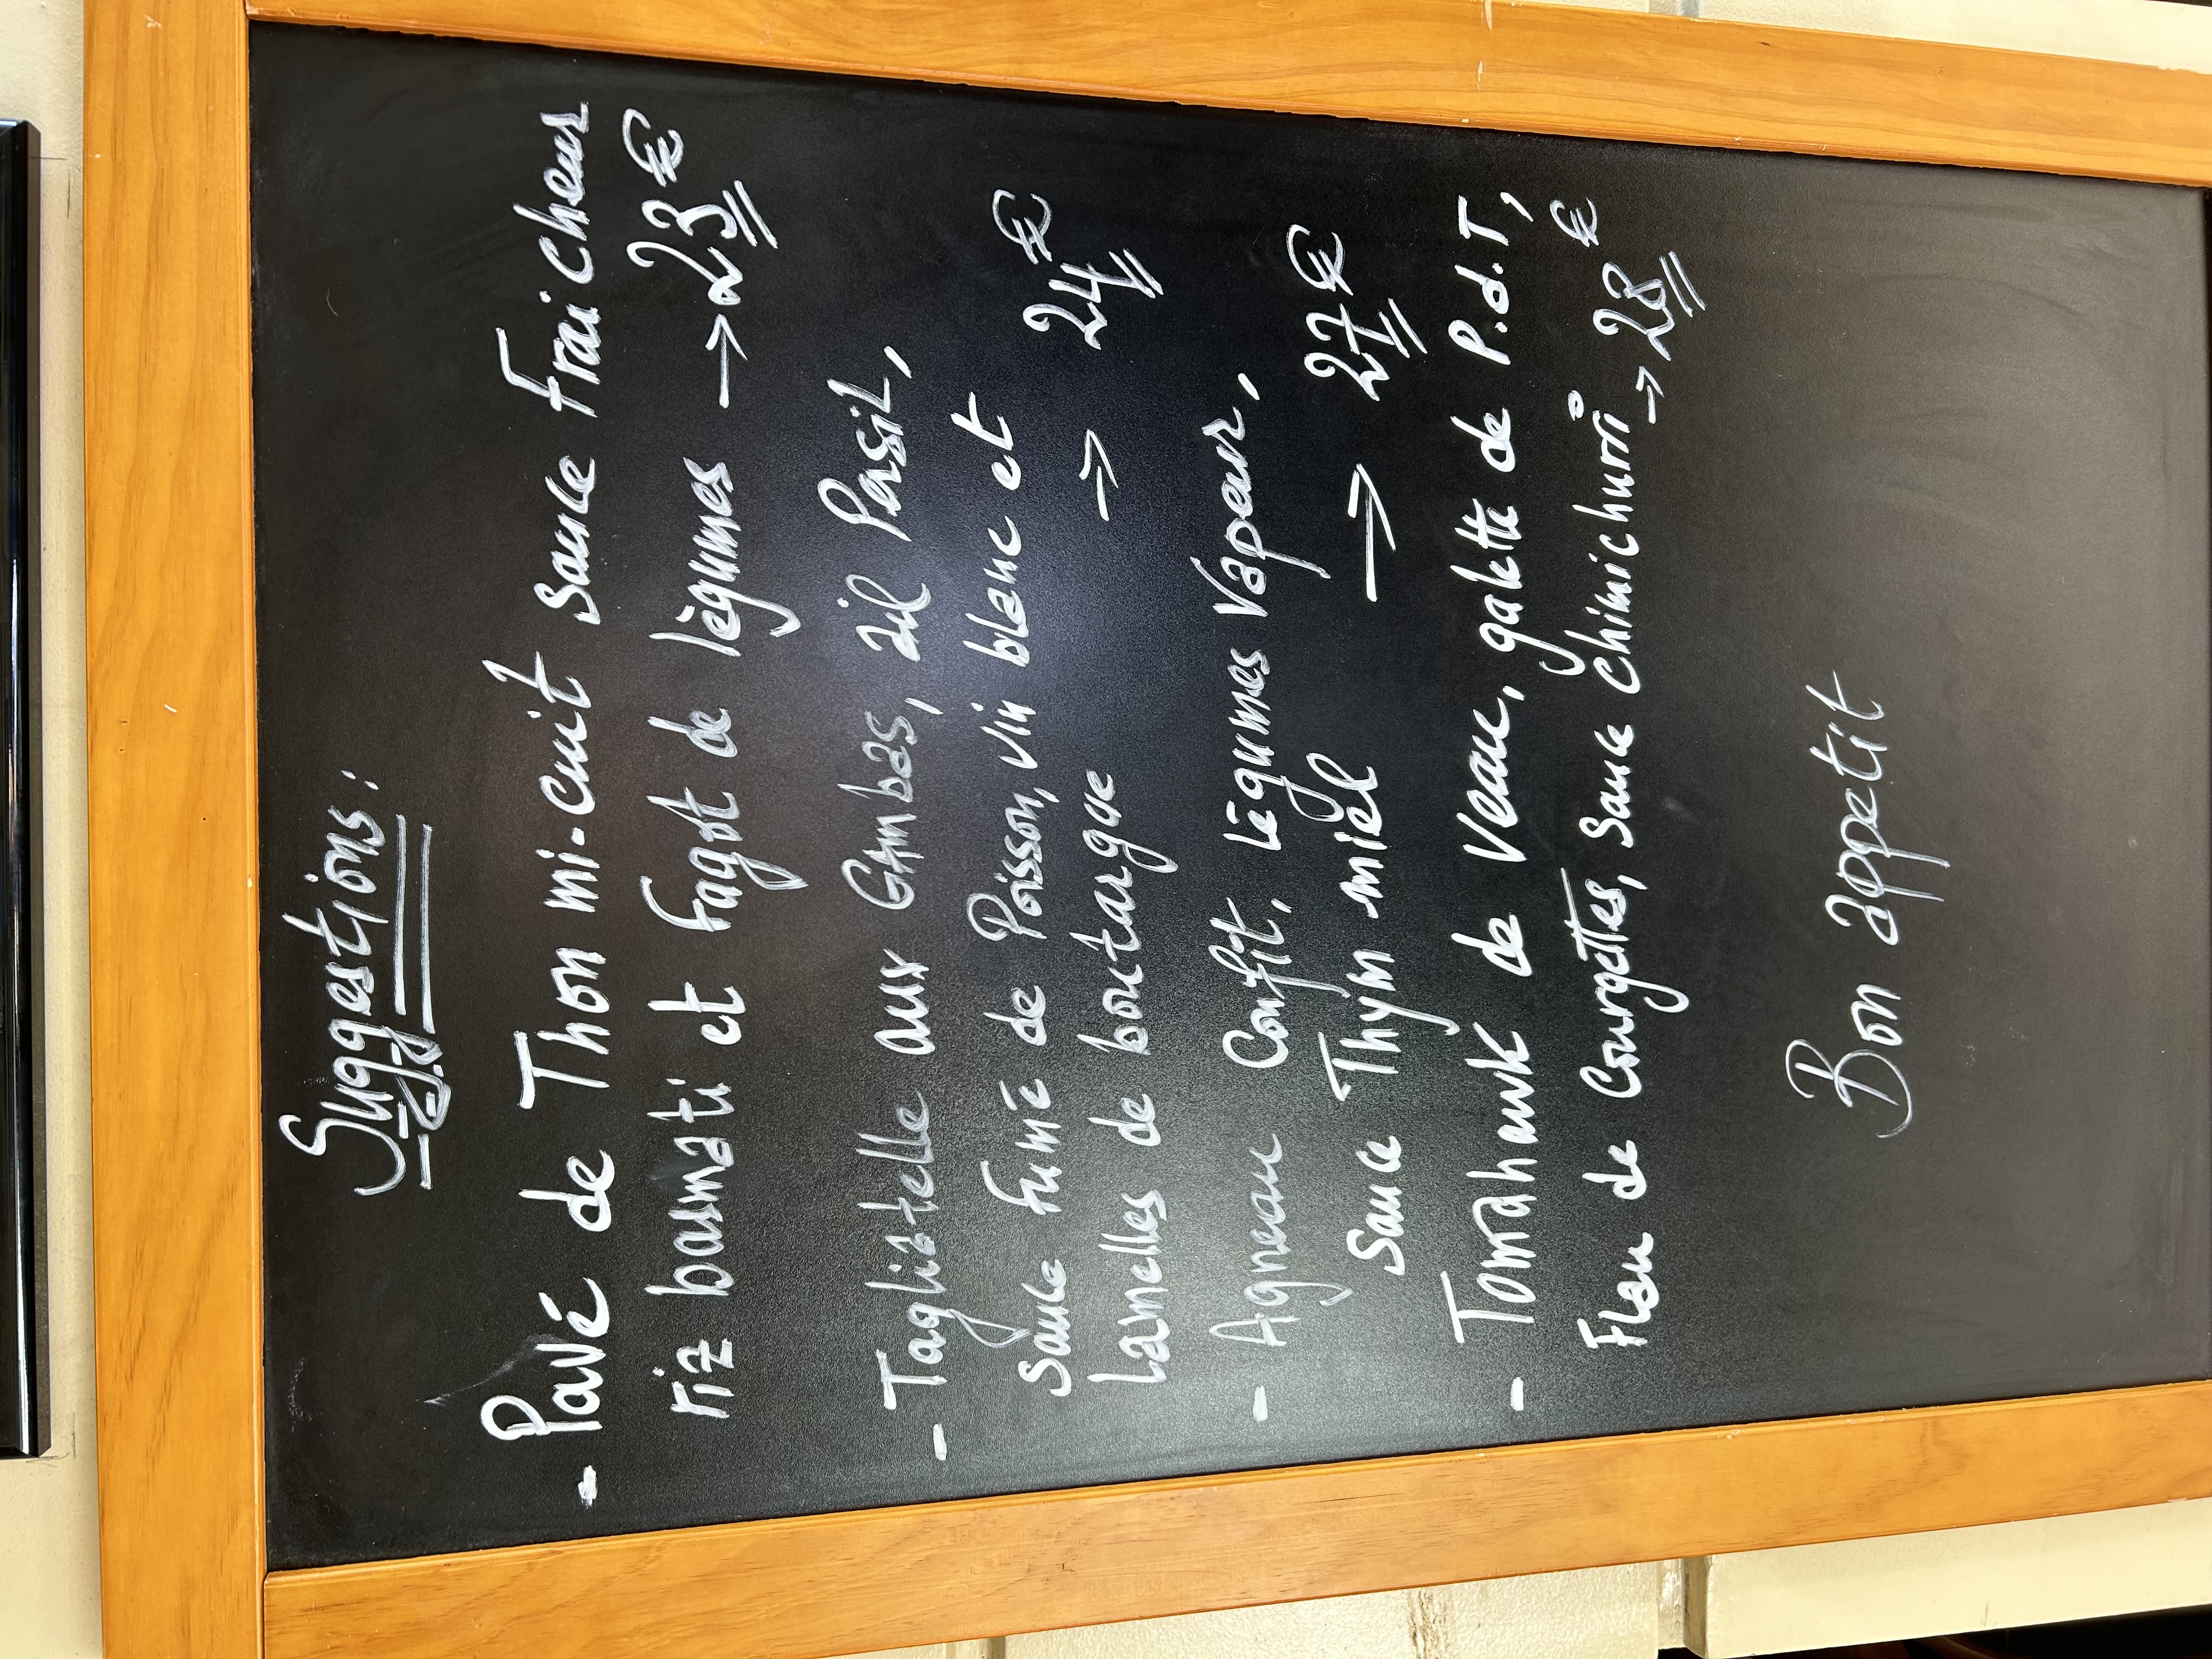 Suggestions:
- Pavé de Thon mi-cuit sauce Fraicheur
riz basmati et fagot de légumes → 23 €
- Tagliatelle aux Gambas, ail Persil,
sauce fumé de Poisson, vin blanc et
Lamelles de boutargue ⇒ 24 €
- Agneau Confit, Légumes Vapeur,
Sauce Thym miel ⇒ 27 €
- Tomahawk de Veau, galette de P.d.T,
Flan de Courgettes, Sauce chimichurri ⇒ 23 €
Bon appetit